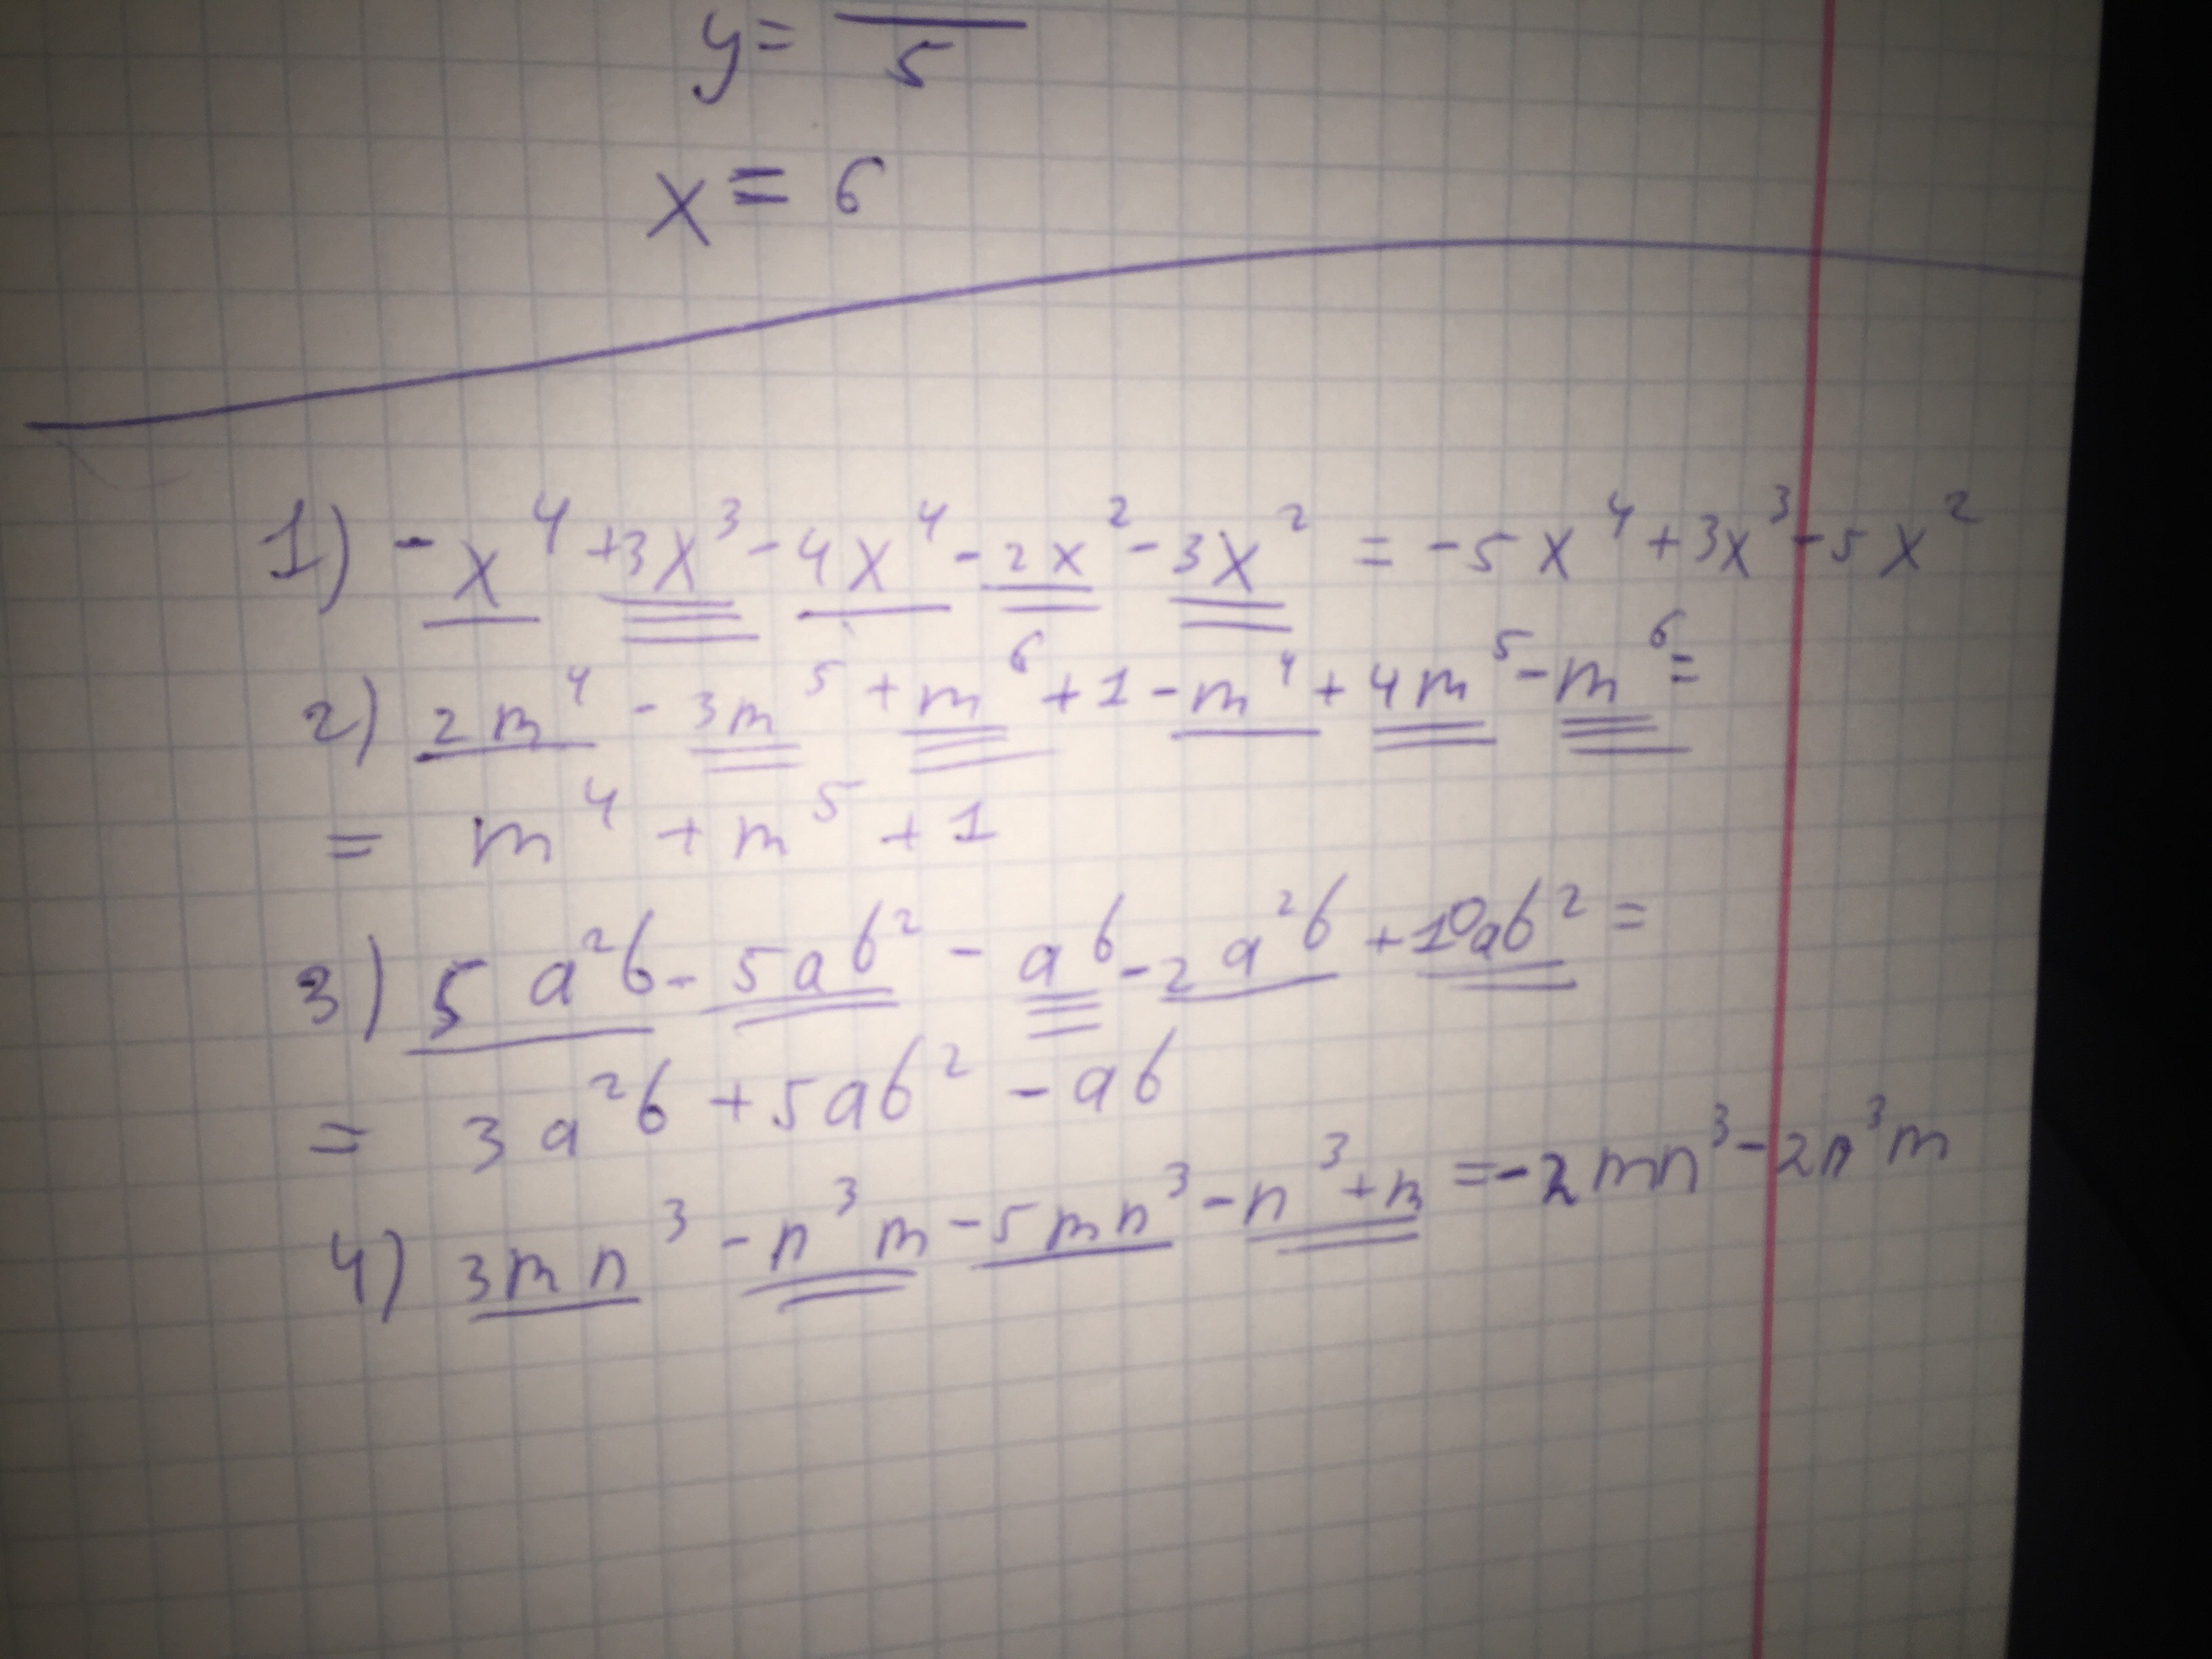 y= —
5
x = 6
1) -x⁴+3x³-4x⁴-2x²-3x² = -5x⁴+3x³-5x²
2) 2m⁴-3m⁵+m⁶+1-m⁴+4m⁵-m⁶=
= m⁴+m⁵+1
3) 5a²b-5ab²-ab-2a²b+10ab²=
= 3a²b+5ab²-ab
4) 3mn³-n³m-5mn³-n³+m=-2mn³-2n³m